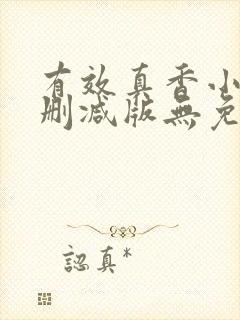 有效真香小
删减版無免
認真*